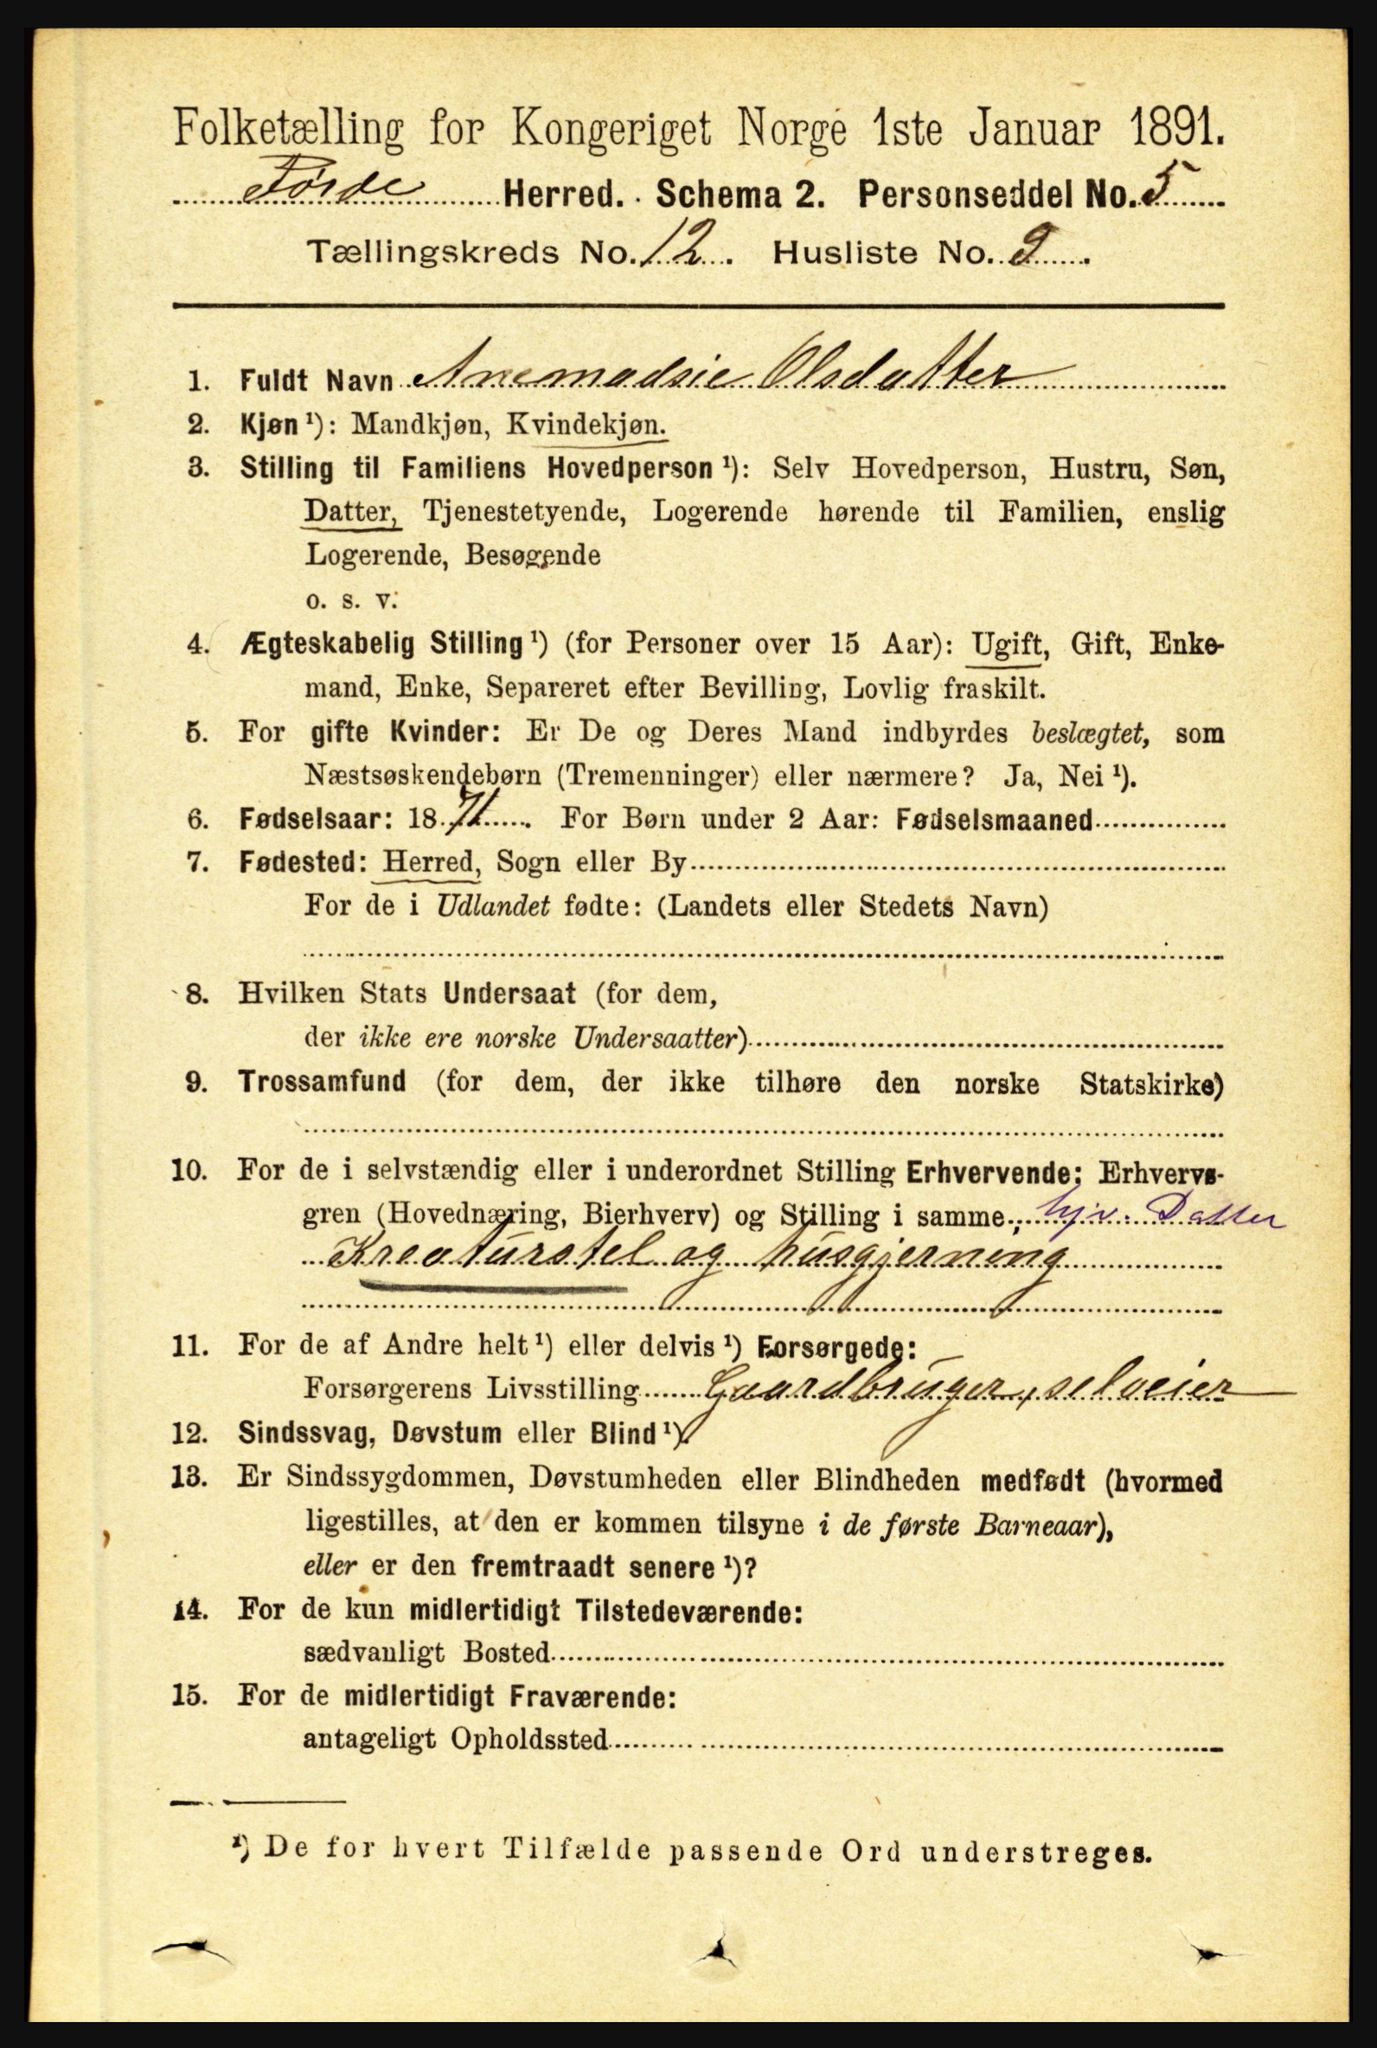 Folketælling for Kongeriget Norge 1ste Januar 1891.
Førde Herred. Schema 2. Personseddel No. 5
Tællingskreds No. 12. Husliste No. 9.
1. Fuldt Navn Anemadsie Olsdatter
2. Kjøn ¹): Mandkjøn, Kvindekjøn.
3. Stilling til Familiens Hovedperson ¹): Selv Hovedperson, Hustru, Søn,
Datter, Tjenestetyende, Logerende hørende til Familien, enslig
Logerende, Besøgende
o. s. v.
4. Ægteskabelig Stilling ¹) (for Personer over 15 Aar): Ugift, Gift, Enke-
mand, Enke, Separeret efter Bevilling, Lovlig fraskilt.
5. For gifte Kvinder: Er De og Deres Mand indbyrdes beslægtet, som
Næstsøskendebørn (Tremenninger) eller nærmere? Ja, Nei ¹).
6. Fødselsaar: 1871. For Børn under 2 Aar: Fødselsmaaned
7. Fødested: Herred, Sogn eller By
For de i Udlandet fødte: (Landets eller Stedets Navn)
8. Hvilken Stats Undersaat (for dem,
der ikke ere norske Undersaatter)
9. Trossamfund (for dem, der ikke tilhøre den norske Statskirke)
10. For de i selvstændig eller i underordnet Stilling Erhvervende: Erhvervs-
gren (Hovednæring, Bierhverv) og Stilling i samme, hjv. Datter
Kreaturstel og husgjerning
11. For de af Andre helt ¹) eller delvis ¹) Forsørgede:
Forsørgerens Livsstilling Gaardbruger, selveier
12. Sindssvag, Døvstum eller Blind ¹).
13. Er Sindssygdommen, Døvstumheden eller Blindheden medfødt (hvormed
ligestilles, at den er kommen tilsyne i de første Barneaar),
eller er den fremtraadt senere ¹)?
14. For de kun midlertidigt Tilstedeværende:
sædvanligt Bosted
15. For de midlertidigt Fraværende:
antageligt Opholdssted
¹) De for hvert Tilfælde passende Ord understreges.